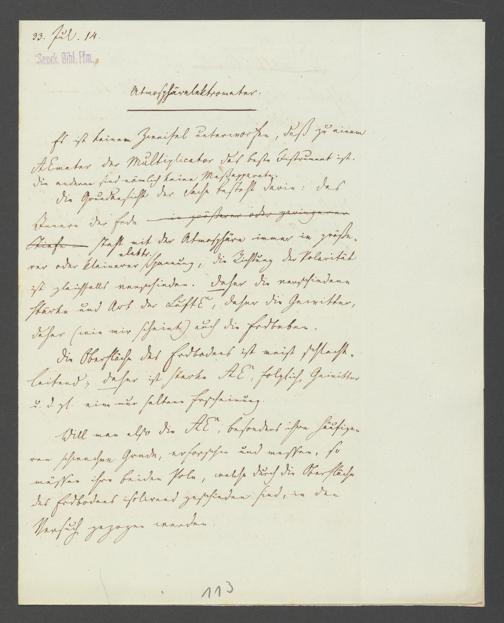 33. Jul. 14.
Senck. Bibl. Ffm.
Atmosphärelektrometer.
Es ist keinem Zweifel unterworfen, daß zu einem
AEmeter der Multiplicator das beste Instrument ist.
die anderen sind nämlich keine Meßapparate.
Die Grundansicht der Sache besteht darin: das
Innere der Erde in größerer oder geringerer
Tiefe steht mit der Atmosphäre immer in größe-
rer oder kleinerer elektr. Spannung, die Richtung der Polarität
ist gleichfalls verschieden. Daher die verschiedene
Stärke und Art der LuftE, daher die Gewitter,
daher (wie mir scheint) auch die Erdbeben.
Die Oberfläche des Erdbodens ist meist schlecht-
leitend, daher ist starke AE, folglich Gewitter
u. d gl. eine nur seltene Erscheinung.
Will man also die AE, besonders ihre häufige-
ren schwachen Grade, erforschen und messen, so
müssen ihre beiden Pole, welche durch die Oberfläche
des Erdbodens isolirend geschieden sind, in den
Versuch gezogen werden
113